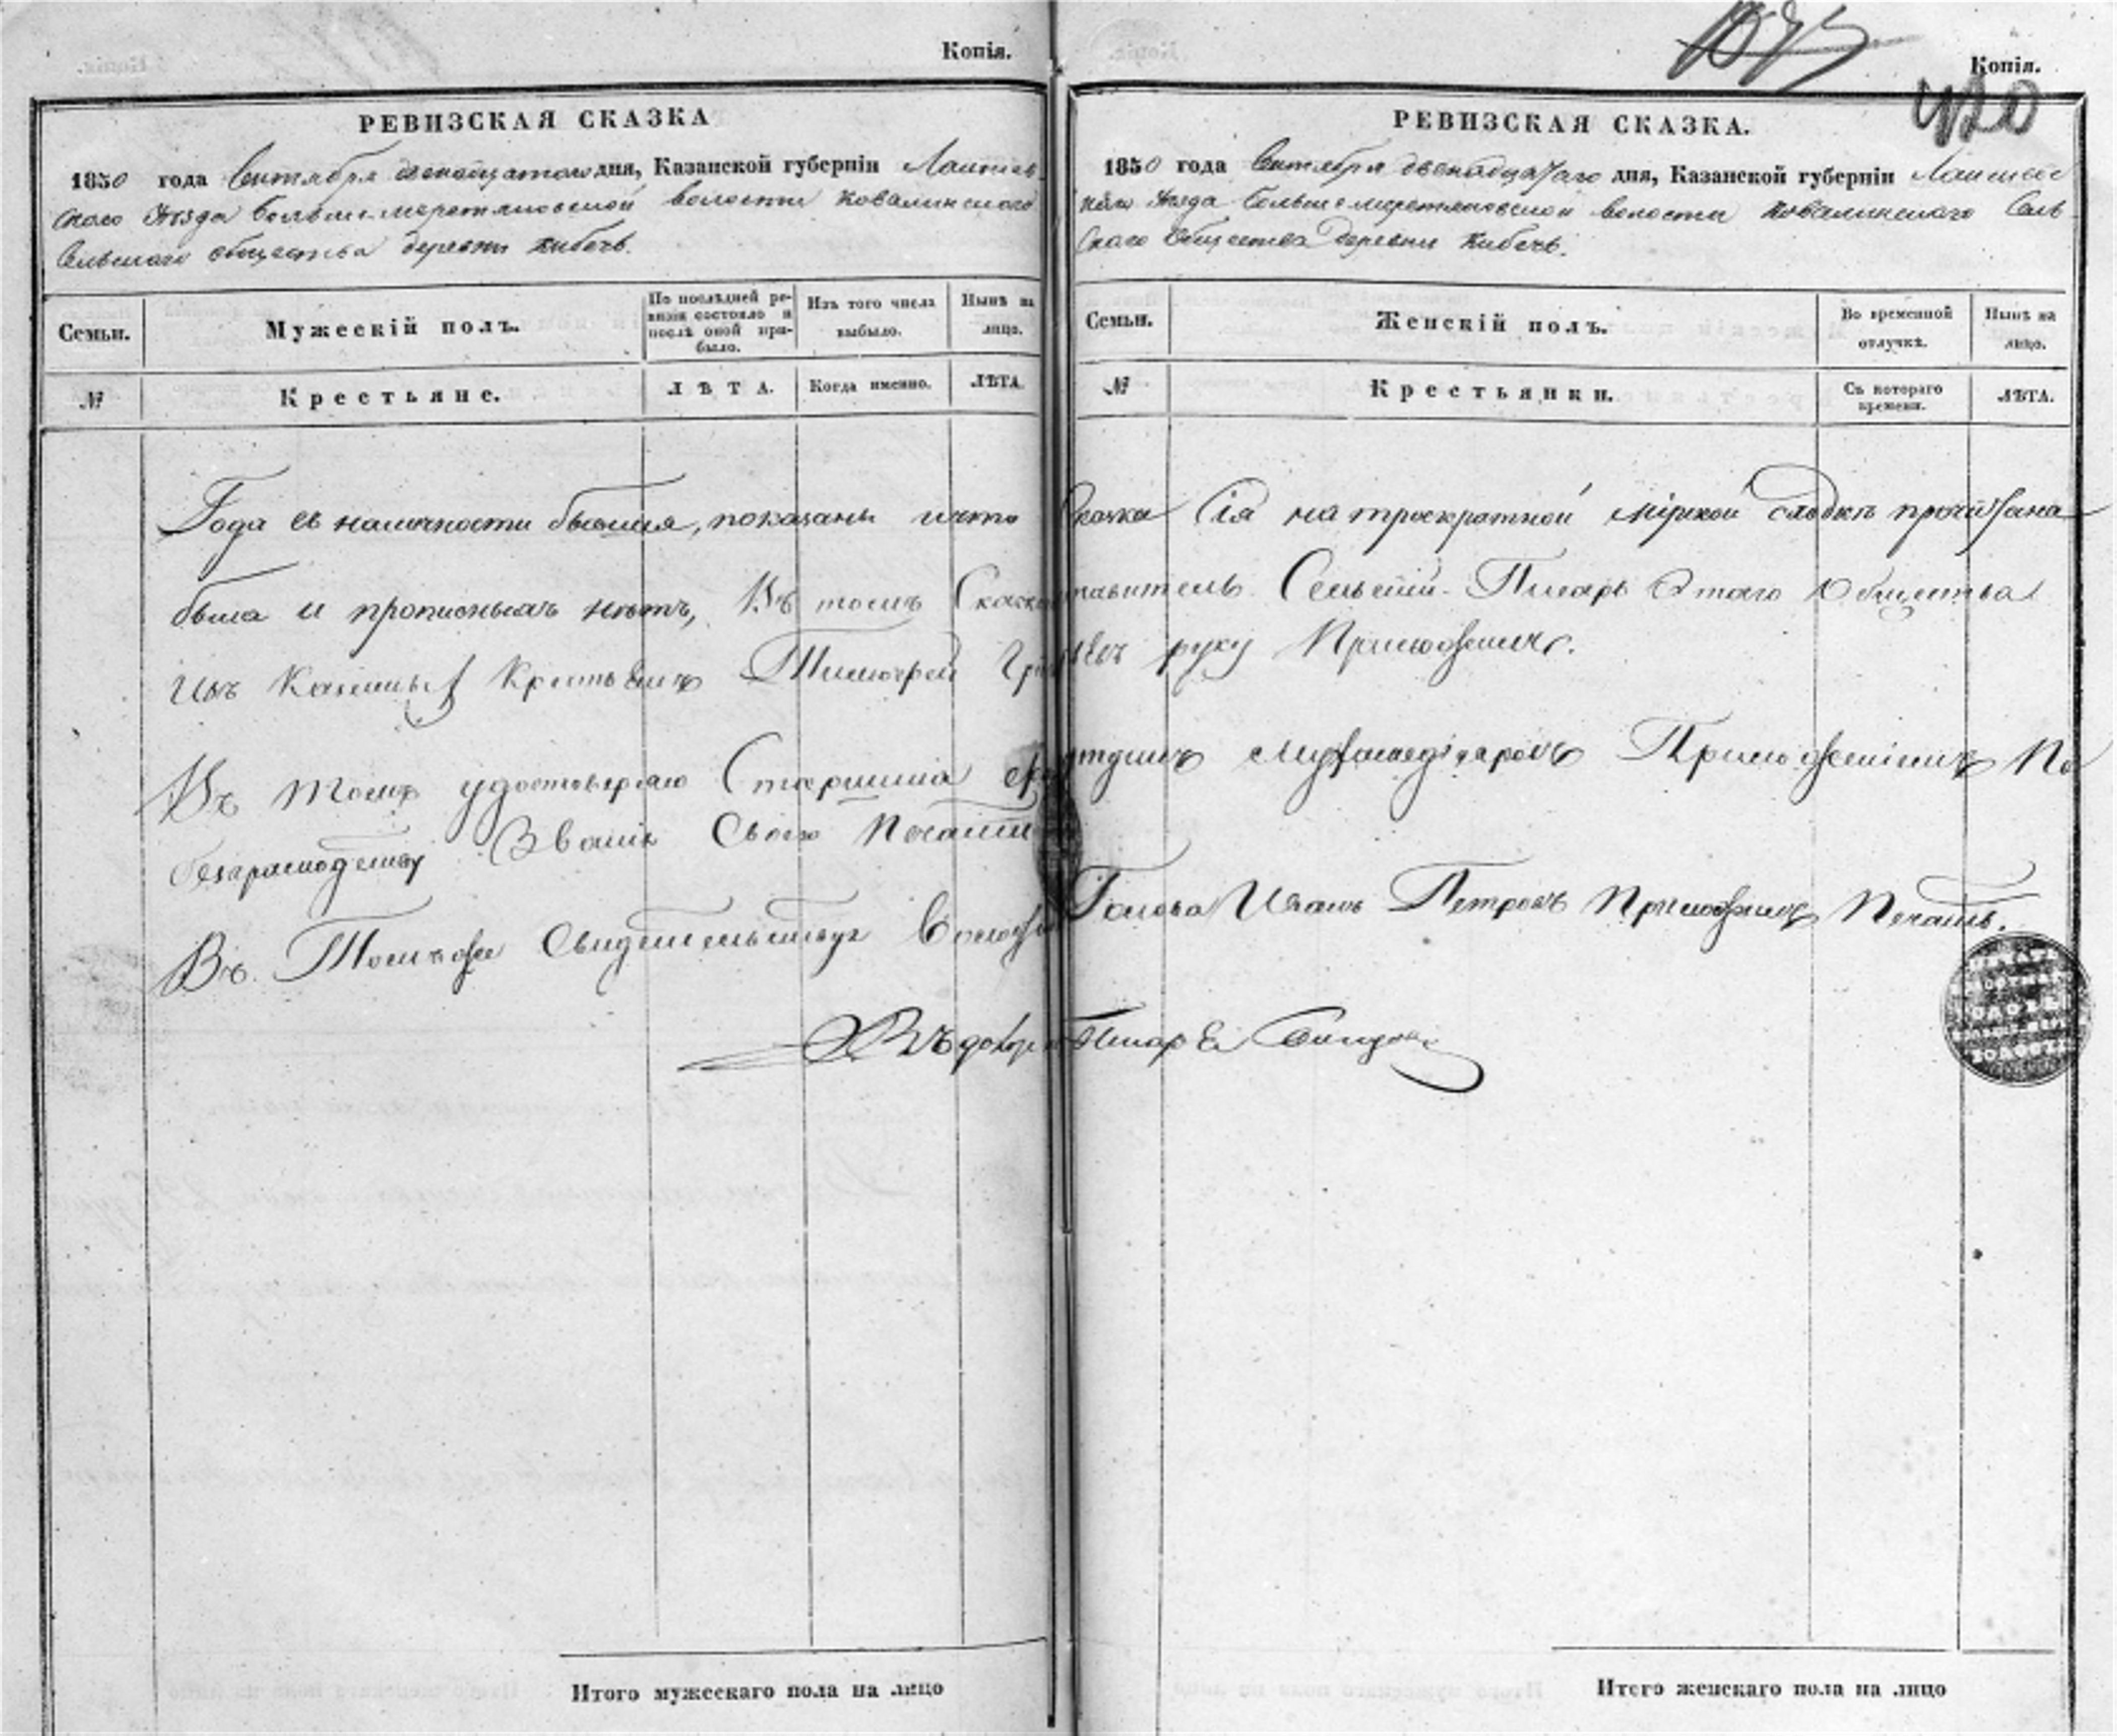 Копія.
РЕВИЗСКАЯ СКАЗКА
1850 года Сентября двенадцатого дня, Казанской губерніи Лаишев
скаго Уѣзда Больше-меретяковской волости Ковалинскаго
Сельскаго общества деревни Кибечь.
Семьи.
Мужескій полъ.
По послѣдней ре-
визіи состояло и
послѣ оной при-
было.
Изъ того числа
выбыло.
Нынѣ на
лицо.
№
Крестьяне.
ЛѢТА.
Когда именно.
ЛѢТА.
Копія.
420
РЕВИЗСКАЯ СКАЗКА.
1850 года Сентября двенадцатаго дня, Казанской губерніи Лаишевс
каго Уѣзда Больше меретяковской волости Ковалинскаго Сель
скаго Общества деревни Кибечь.
Семьи.
Женскій полъ.
Во временной
отлучкѣ.
Нынѣ на
лицо.
№
Крестьянки.
Съ котораго
времени.
ЛѢТА.
Года въ наличности бывшія, показаны и что Сказка Сія на троекратной мірской сходкѣ прочитана
была и прописныхъ нѣтъ, Въ томъ Сельскій Писарь Этаго Общества
изъ Крестьянъ Тимофей руку Приложилъ.
Въ томъ удостоверяю Старшина Приложеніемъ По
безграмотству Званія Своего Печати
Въ Томъ же Свидетельствуя Голова Иванъ Петровъ Приложилъ Печать.
Писарь
Итого мужескаго пола на лицо
Итого женскаго пола на лицо